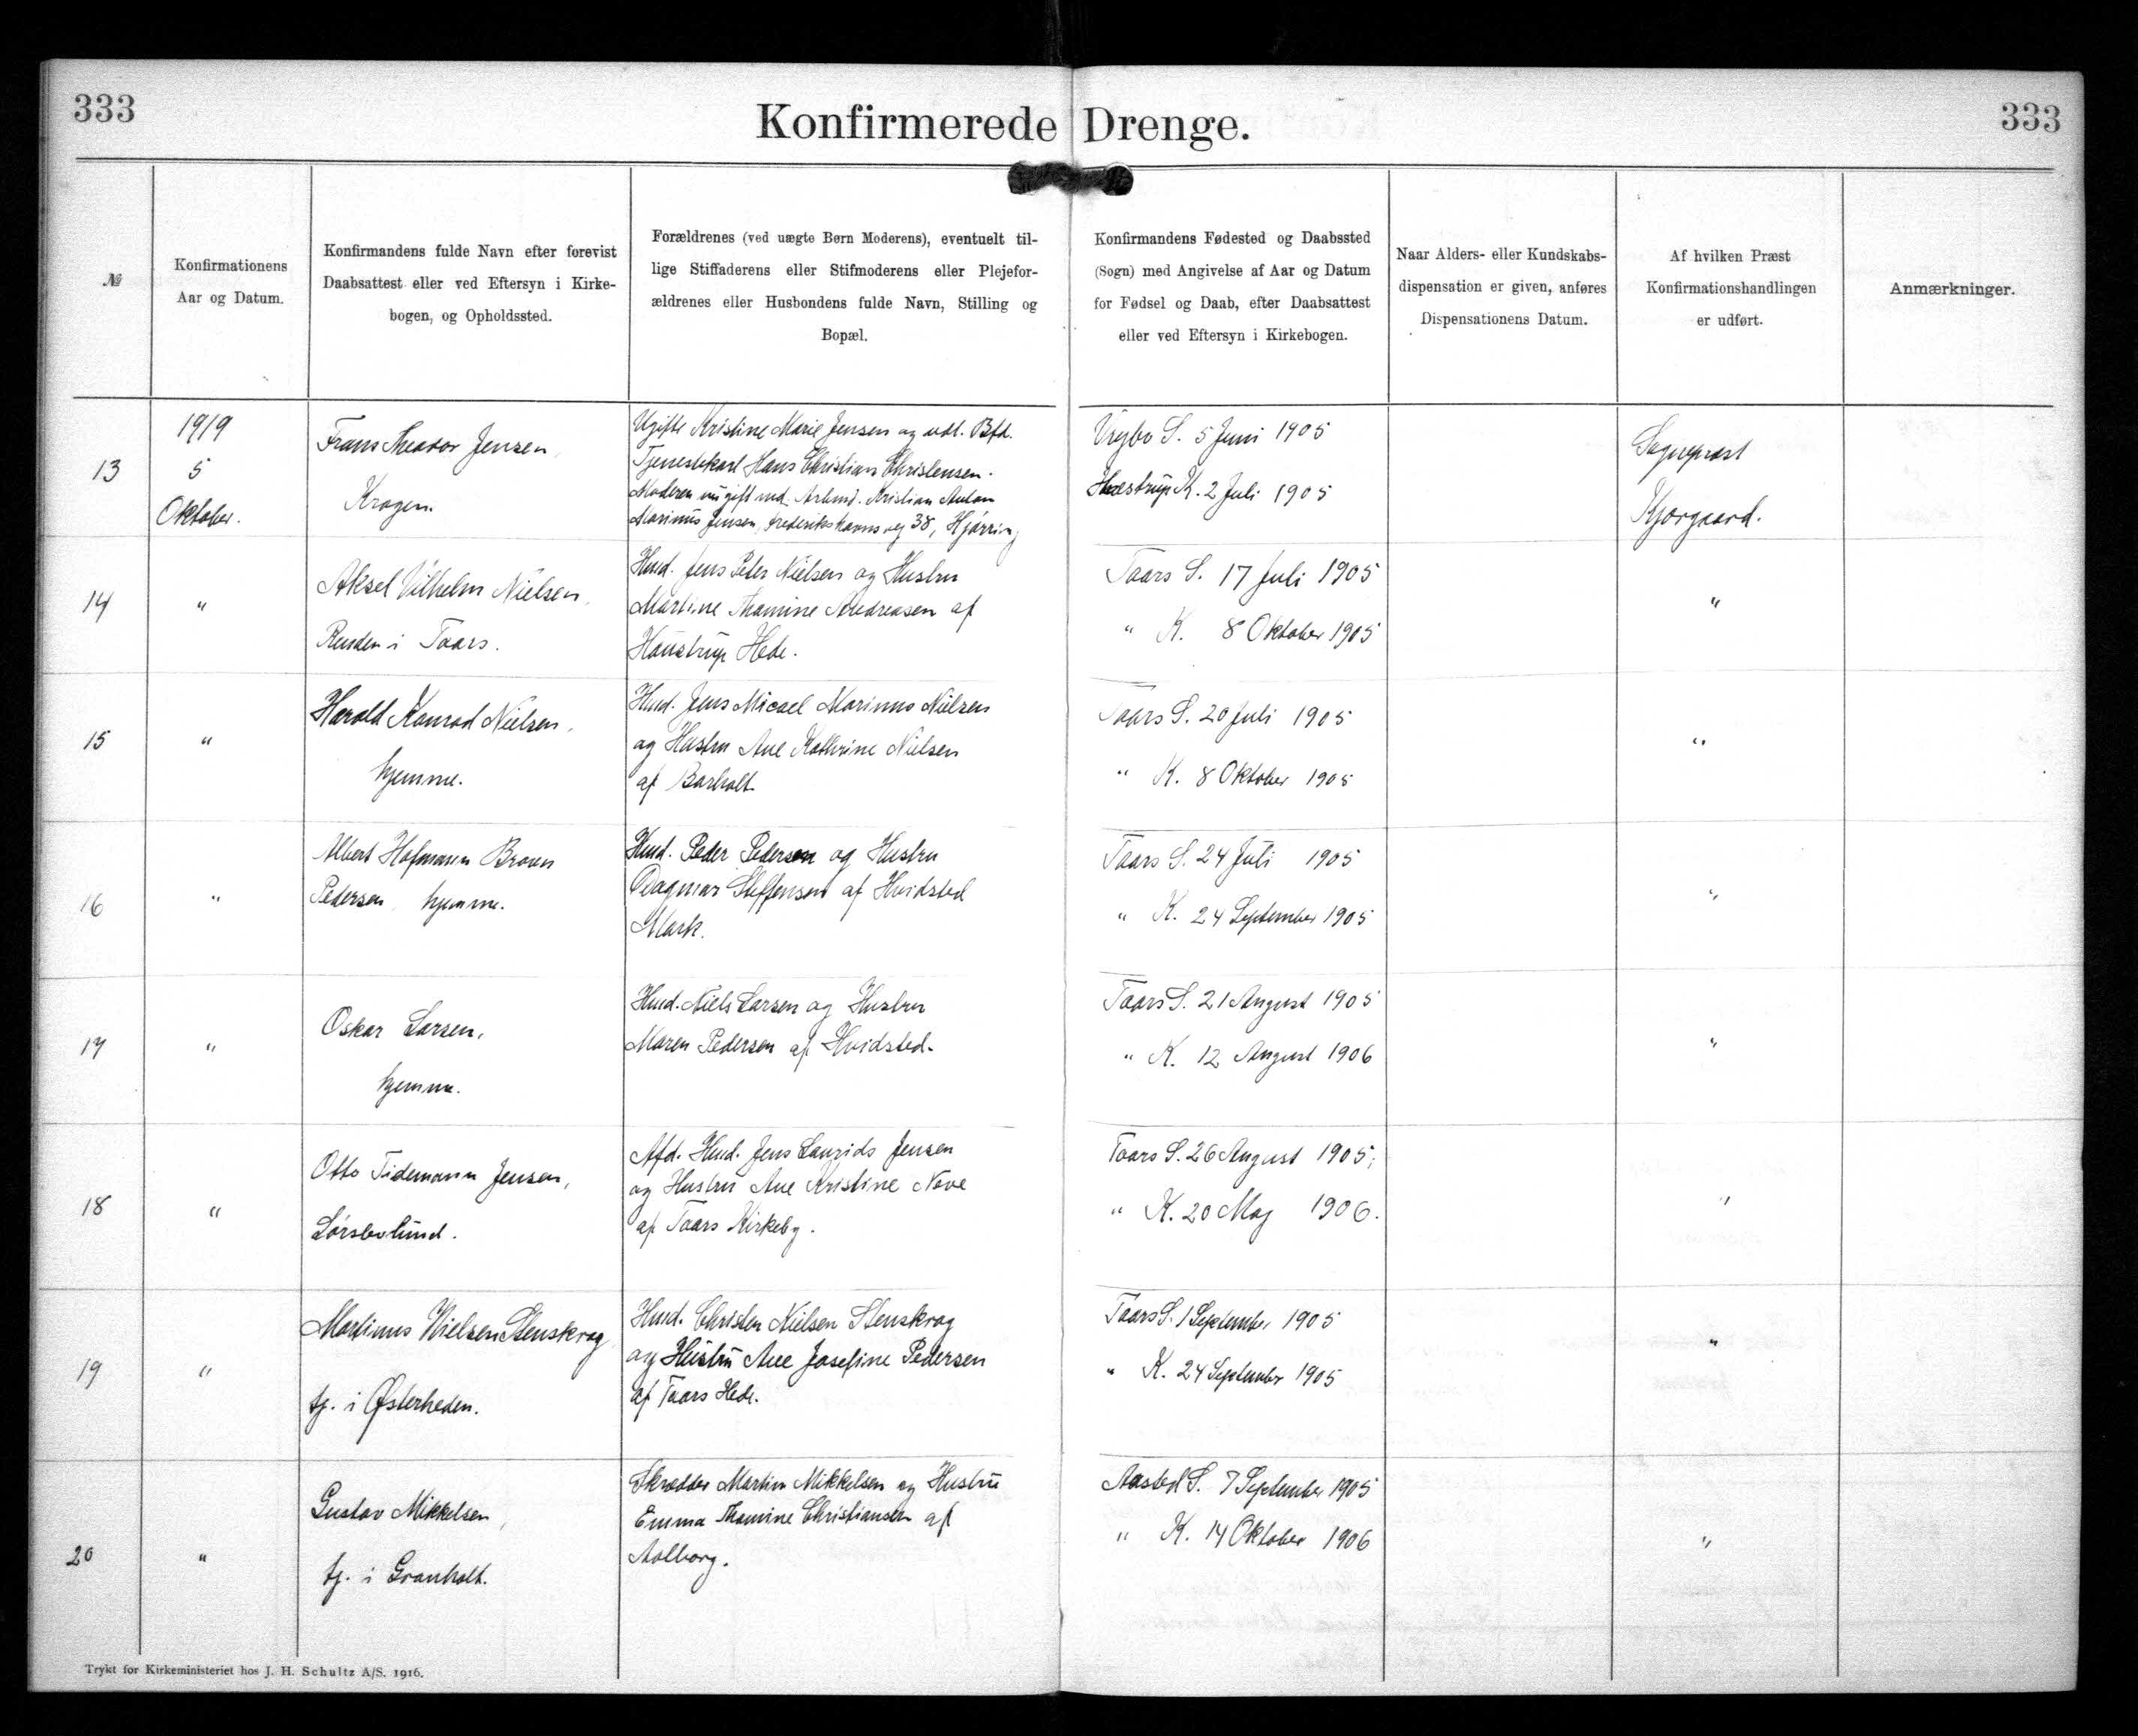 333
Konfirmerede Drenge.
333
№
Konfirmationens
Aar og Datum.
Konfirmandens fulde Navn efter forevist
Daabsattest eller ved Eftersyn i Kirke-
bogen, og Opholdssted.
Forældrenes (ved uægte Børn Moderens), eventuelt til-
lige Stiffaderens eller Stifmoderens eller Plejefor-
ældrenes eller Husbondens fulde Navn, Stilling og
Bopæl.
Konfirmandens Fødested og Daabssted
(Sogn) med Angivelse af Aar og Datum
for Fødsel og Daab, efter Daabsattest
eller ved Eftersyn i Kirkebogen.
Naar Alders- eller Kundskabs-
dispensation er given, anføres
Dispensationens Datum.
Af hvilken Præst
Konfirmationshandlingen
er udført.
Anmærkninger.
13
1919
5
Oktober.
Frans Theodor Jensen,
Krogen.
Ugifte Kristine Marie Jensen og udl. Bfd.
Tjenestekarl Hans Christian Christensen.
Moderen nu gift med Arbmd. Kristian Anton
Marinus Jensen, Frederikshavnsvej 38, Hjørring
Vrejbo S. 5 Juni 1905
Hæstrup K. 2 Juli 1905
Sognepræst
Kjærgaard.
14
"
Aksel Vilhelm Nielsen,
Renden i Taars.
Hmd. Jens Peter Nielsen og Hustru
Martine Thomine Andreasen af
Haustrup Hede.
Taars S. 17 Juli 1905
" K. 8 Oktober 1905
"
15
"
Harald Konrad Nielsen,
hjemme.
Hmd. Jens Micael Marinus Nielsen
og Hustru Ane Kathrine Nielsen
af Barholt
Taars S. 20 Juli 1905
" K. 8 Oktober 1905
"
16
"
Albert Hofmann Broen
Pedersen, hjemme.
Hmd. Peder Pedersen og Hustru
Dagmar Steffensen af Hvidsted
Mark.
Taars S. 24 Juli 1905
" K. 24 September 1905
"
17
"
Oskar Larsen,
hjemme.
Hmd. Niels Larsen og Hustru
Maren Pedersen af Hvidsted.
Taars S. 21 August 1905
" K. 12 August 1906
"
18
"
Otto Tidemann Jensen,
Lørslevlund.
Afd. Hmd. Jens Laurids Jensen
og Hustru Ane Kristine Nove
af Taars Kirkeby.
Taars S. 26 August 1905;
" K. 20 Maj 1906.
"
19
"
Martinus Nielsen Stenskrog
tj. i Østerheden.
Hmd. Christen Nielsen Stenskrog
og Hustru Ane Josefine Pedersen
af Taars Hede.
Taars S. 1 September 1905
" K. 24 September 1905
"
20
"
Gustav Mikkelsen,
tj. i Granholt.
Skrædder Martin Mikkelsen og Hustru
Emma Thomine Christiansen af
Aalborg.
Aasted S. 7 September 1905
" K. 14 Oktober 1906
"
Trykt for Kirkeministeriet hos J. H. Schultz A/S. 1916.